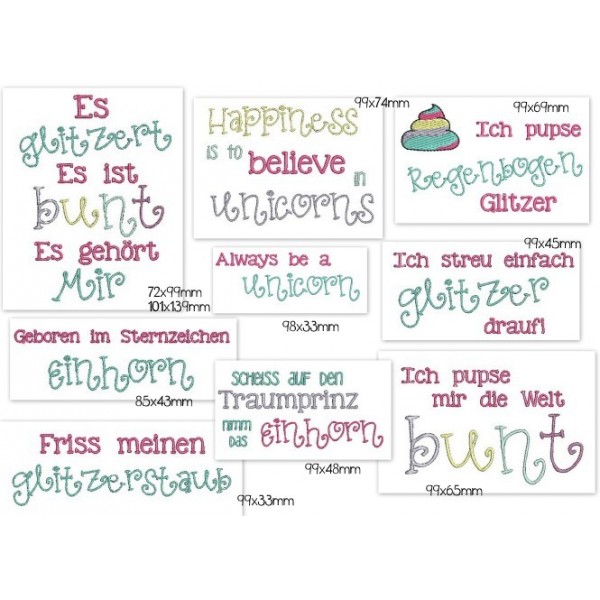 Es
glitzert
Es ist
bunt
Es gehört
Mir
72x99mm
101x139mm
99x74mm
Happiness
is to believe in
unicorns
99x69mm
Ich pupse
Regenbogen
Glitzer
Always be a
unicorn
98x33mm
99x45mm
Ich streu einfach
glitzer
drauf!
Geboren im Sternzeichen
einhorn
85x43mm
Scheiss auf den
Traumprinz
nimm das einhorn
99x48mm
Ich pupse
mir die Welt
bunt
99x65mm
Friss meinen
glitzerstaub
99x33mm